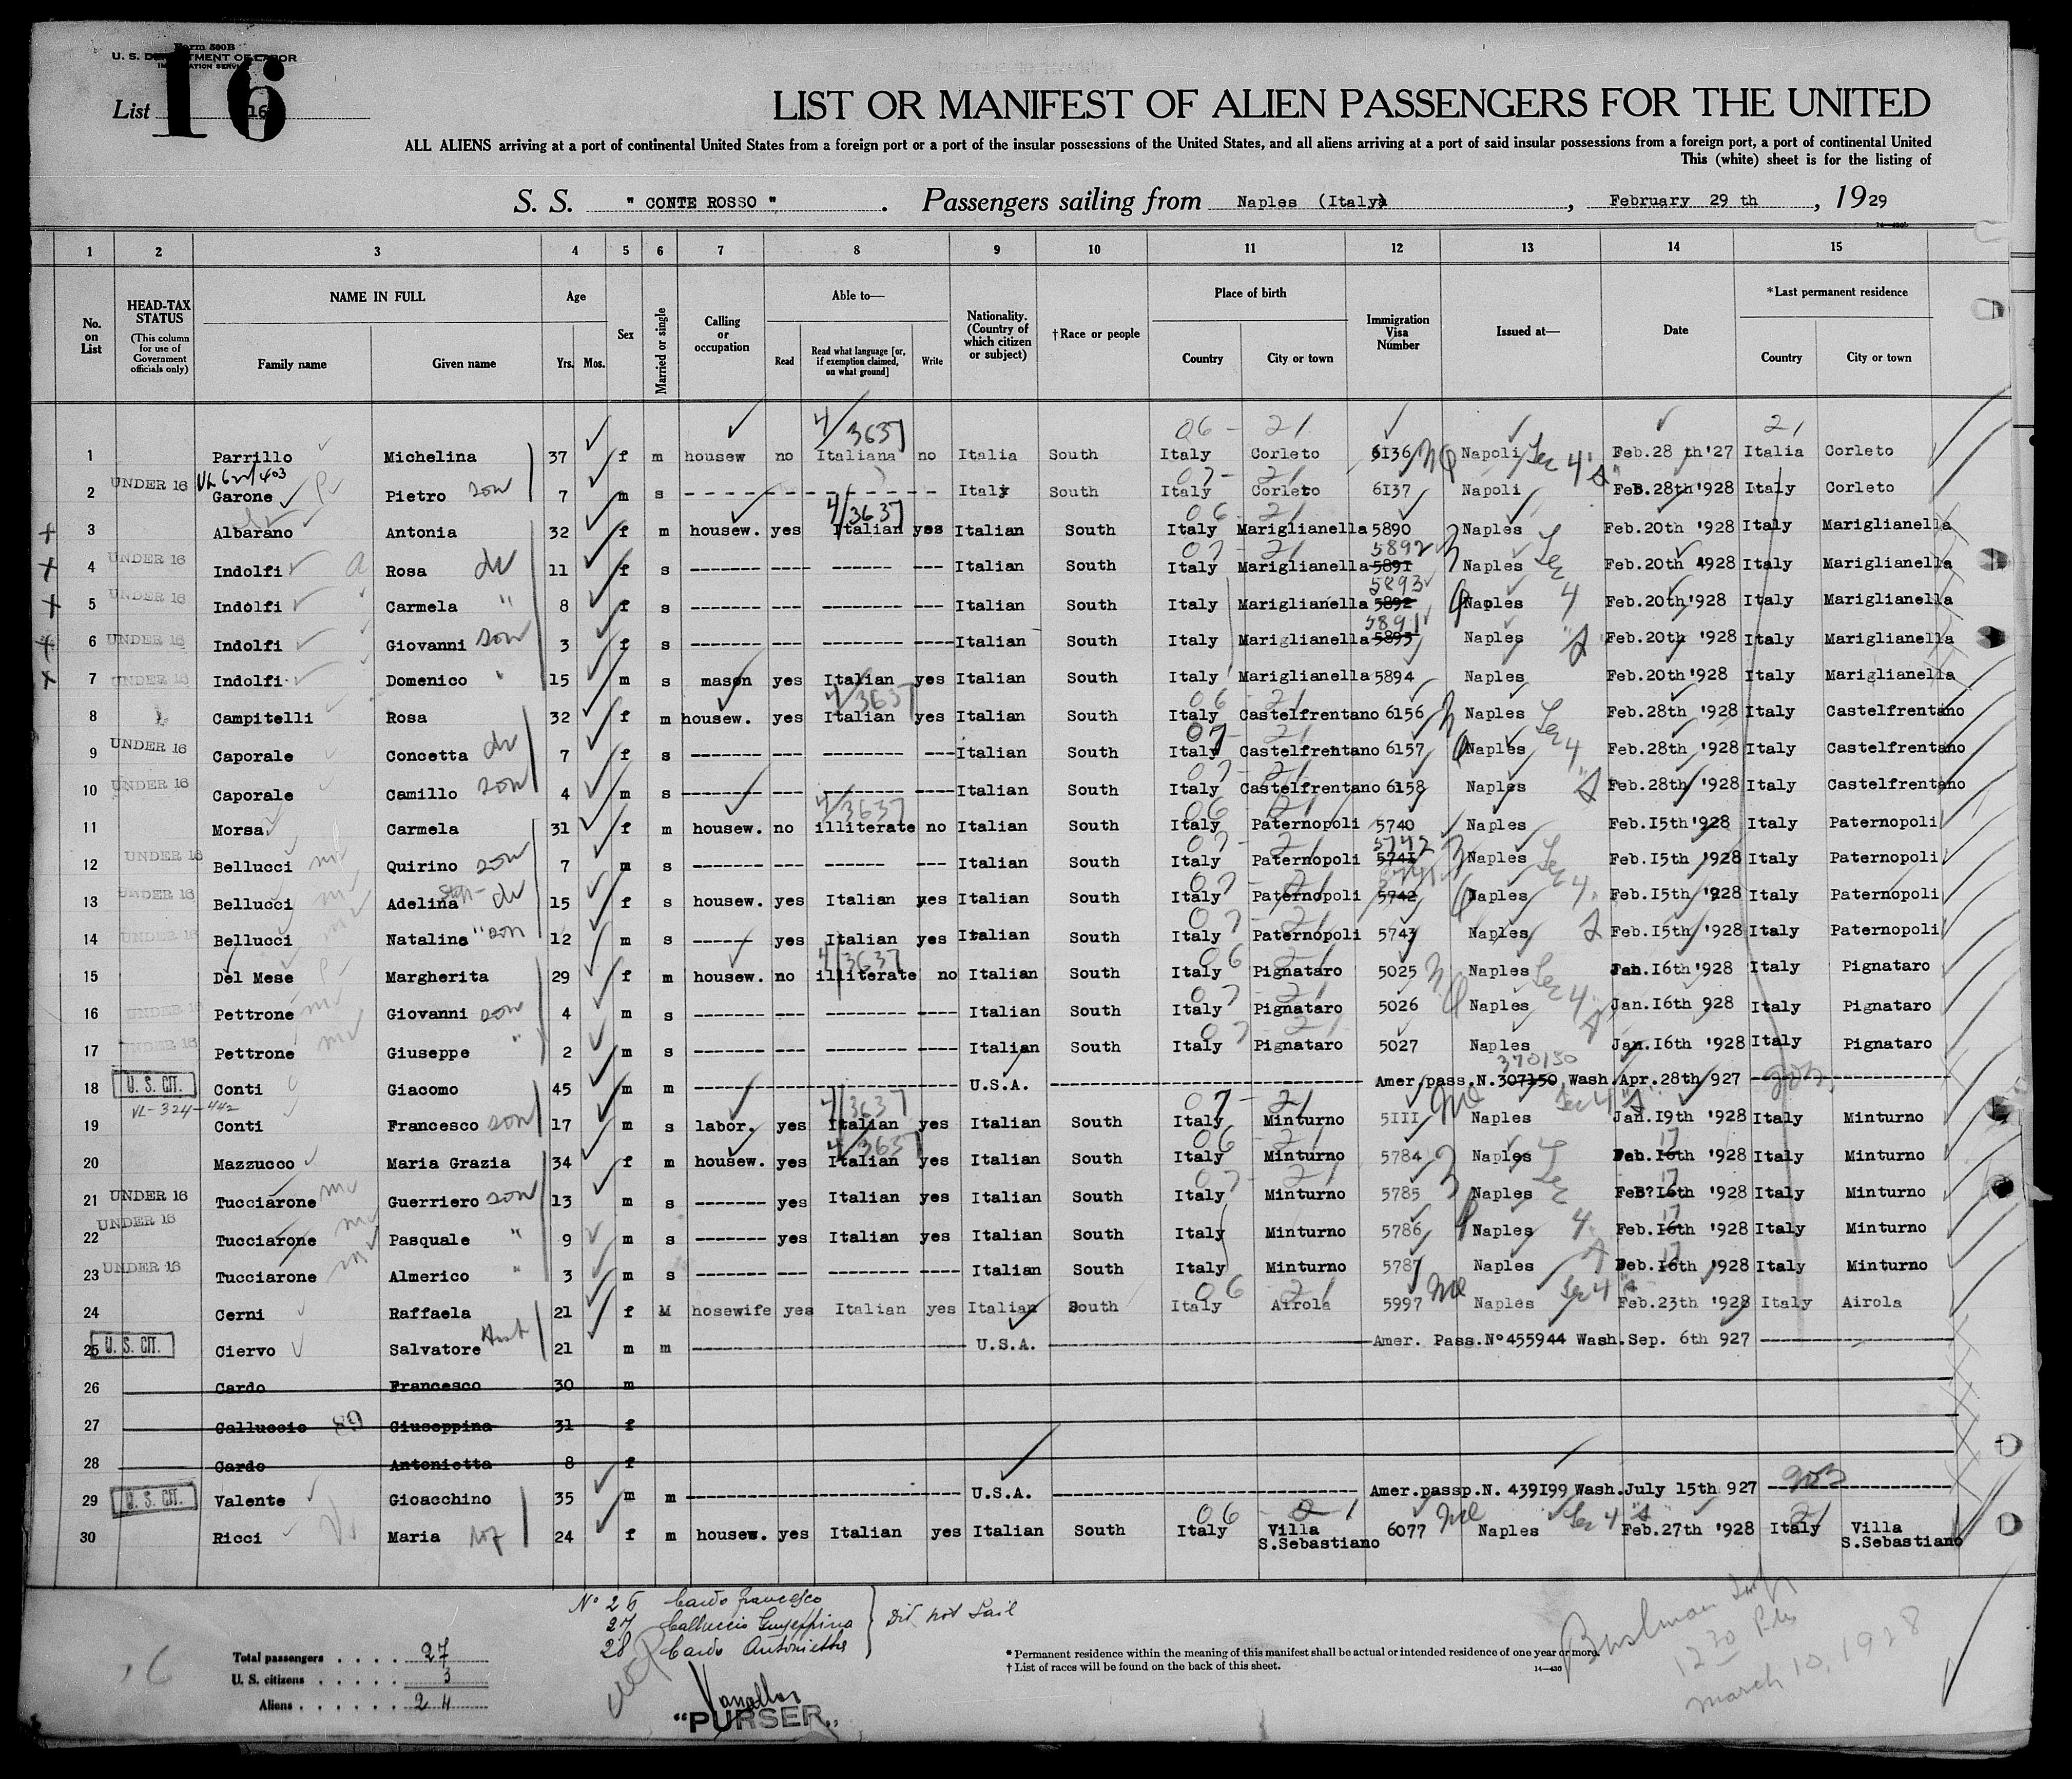 Form 500B
U. S. DEPARTMENT OF LABOR
IMMIGRATION SERVICE
List 16
16
LIST OR MANIFEST OF ALIEN PASSENGERS FOR THE UNITED
ALL ALIENS arriving at a port of continental United States from a foreign port or a port of the insular possessions of the United States, and all aliens arriving at a port of said insular possessions from a foreign port, a port of continental United
This (white) sheet is for the listing of
S. S. " CONTE ROSSO " . Passengers sailing from Naples (Italy) , February 29 th , 1929
1 2 3 4 5 6 7 8 9 10 11 12 13 14 15
No. on List
HEAD-TAX STATUS
(This column for use of Government officials only)
NAME IN FULL
Family name Given name
Age
Yrs. Mos.
Sex
Married or single
Calling or occupation
Able to—
Read
Read what language [or, if exemption claimed, on what ground]
Write
Nationality. (Country of which citizen or subject)
†Race or people
Place of birth
Country City or town
Immigration Visa Number
Issued at—
Date
*Last permanent residence
Country City or town
4/3637 06 - 21 21
1 Parrillo Michelina 37 f m housew no Italiana no Italia South Italy Corleto 6I36 Napoli Sec 4 Feb.28 th '27 Italia Corleto
VL 62/403 07 - 21
2 UNDER 16 Garone Pietro son 7 m s - - - - - - - - - - - - - Italy South Italy Corleto 6I37 Napoli FeB.28th'928 Italy Corleto
4/3637 06 - 21
3 Albarano Antonia 32 f m housew. yes Italian yes Italian South Italy Mariglianella 5890 Naples Feb.20th '928 Italy Mariglianella
07 - 21 5892
4 UNDER 16 Indolfi Rosa 11 f s ------- ---- ------ --- Italian South Italy Mariglianella 589I Naples Sec Feb.20th 4928 Italy Mariglianella
5893
5 UNDER 16 Indolfi Carmela " 8 f s ------- --- -------- --- Italian South Italy Mariglianella 5892 Naples 4 Feb.20th'928 Italy Mariglianella
5891
6 UNDER 16 Indolfi Giovanni son 3 f s ------- --- -------- ---- Italian South Italy Mariglianella 5893 Naples Feb.20th '928 Italy Mariglianella
7 UNDER 16 Indolfi Domenico " 15 m s mason yes Italian yes Italian South Italy Mariglianella 5894 Naples Feb.20th '928 Italy Mariglianella
4/3637 06 - 21
8 Campitelli Rosa 32 f m housew. yes Italian yes Italian South Italy Castelfrentano 6I56 Naples Sec 4 Feb.28th '928 Italy Castelfrentano
07 - 21
9 UNDER 16 Caporale Concetta 7 f s ------- --- -------- --- Italian South Italy Castelfrentano 6I57 Naples Feb.28th '928 Italy Castelfrentano
07 - 21
10 UNDER 16 Caporale Camillo son 4 m s ------- --- -------- ---- Italian South Italy Castelfrentano 6I58 Naples Feb.28th '928 Italy Castelfrentano
4/3637 06 - 21
11 Morsa Carmela 31 f m housew. no illiterate no Italian South Italy Paternopoli 5740 Naples Feb.I5th'928 Italy Paternopoli
07 - 21 5742
12 UNDER 16 Bellucci Quirino son 7 m s ------- --- ------ --- Italian South Italy Paternopoli 574I Naples Sec Feb.I5th '928 Italy Paternopoli
07 - 21 5741
13 UNDER 16 Bellucci Adelina Step- 15 f s housew. yes Italian yes Italian South Italy Paternopoli 5742 Naples 4 Feb.I5th '928 Italy Paternopoli
07 - 21
14 UNDER 16 Bellucci Nataline " son 12 m s ------ yes Italian yes Italian South Italy Paternopoli 5743 Naples Feb.I5th '928 Italy Paternopoli
4/3637 06 - 21
15 Del Mese Margherita 29 f m housew. no illiterate no Italian South Italy Pignataro 5025 Naples Sec 4 Jan.I6th '928 Italy Pignataro
07 - 21
16 UNDER 16 Pettrone Giovanni son 4 m s ------- --- -------- ---- Italian South Italy Pignataro 5026 Naples Jan.I6th 928 Italy Pignataro
07 - 21
17 UNDER 16 Pettrone Giuseppe " 2 m s ------- --- -------- ---- Italian South Italy Pignataro 5027 Naples Jan.I6th '928 Italy Pignataro
370150
18 U. S. CIT. Conti Giacomo 45 m m ---------------- U.S.A. ---------------- Amer.pass.N.307I50 Wash.Apr.28th 927
VL-324-442 4/3637 07 - 21 Sec 4
19 Conti Francesco son 17 m s labor. yes Italian yes Italian South Italy Minturno 5III Naples Jan.I9th '928 Italy Minturno
4/3637 06 - 21 17
20 Mazzucco Maria Grazia 34 f m housew. yes Italian yes Italian South Italy Minturno 5784 Naples Feb.I6th '928 Italy Minturno
07 - 21 17
21 UNDER 16 Tucciarone Guerriero son 13 m s ------- yes Italian yes Italian South Italy Minturno 5785 Naples Sec FeB?I6th '928 Italy Minturno
17
22 UNDER 16 Tucciarone Pasquale " 9 m s ------- yes Italian yes Italian South Italy Minturno 5786 Naples 4 Feb.I6th '928 Italy Minturno
17
23 UNDER 16 Tucciarone Almerico " 3 m s ------- --- -------- ---- Italian South Italy Minturno 5787 Naples Feb.I6th '928 Italy Minturno
06 - 21
24 Cerni Raffaela 21 f M hosewife yes Italian yes Italian South Italy Airola 5997 Naples Sec 4 Feb.23th '928 Italy Airola
25 U. S. CIT. Ciervo Salvatore 21 m m ---------------- U.S.A. ---------------- Amer. Pass.N°455944 Wash.Sep. 6th 927
26 Cardo Francesco 30 m
27 Calluccio 89 Giuseppina 31 f
28 Cardo Antonietta 8 f
29 U. S. CIT. Valente Gioacchino 35 m m ---------------- U.S.A. ---------------- Amer.passp.N. 439I99 Wash.July 15th 927
06 - 21 Sec 4 21
30 Ricci Maria 24 f m housew. yes Italian yes Italian South Italy Villa S.Sebastiano 6077 Naples Feb.27th '928 Italy Villa S.Sebastiano
N° 26 Cardo Francesco
27 Calluccio Giuseppina Did not Sail
28 Cardo Antonietta
Total passengers . . . . 27
U. S. citizens . . . . . 3
Aliens . . . . . . 24
"PURSER"
* Permanent residence within the meaning of this manifest shall be actual or intended residence of one year or more.
† List of races will be found on the back of this sheet.
14—430
12 30 Pm
March 10, 1928